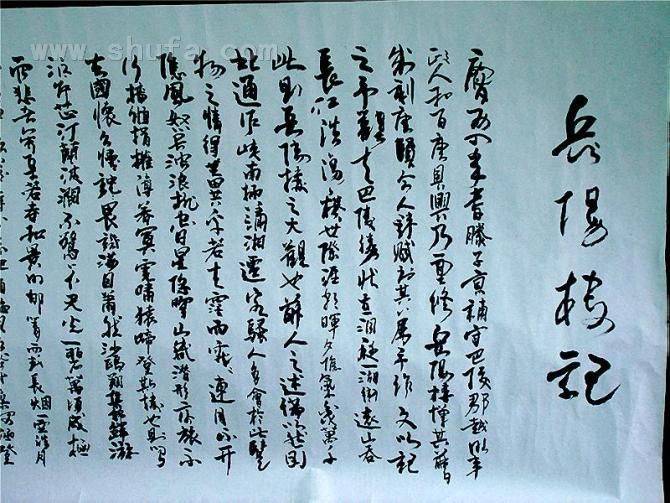 岳陽樓記
慶曆四年春滕子京謫守巴陵郡越明年
政人和百廢具興乃重修岳陽樓增其舊
制刻唐賢今人詩賦於其上屬予作文以記
之予觀夫巴陵勝狀在洞庭一湖銜遠山吞
長江浩湯橫無際涯朝暉夕陰氣象萬千
此則岳陽樓之大觀也前人之述備矣然則
北通巫峽南極瀟湘遷客騷人多會於此覽
物之情得無異乎若夫霪雨霏連月不開
隱風怒號濁浪排空日星隱曜山岳潛形商旅不
行檣傾楫摧薄暮冥虎嘯猿啼登斯樓也則有
去國懷鄉憂讒畏譏滿目蕭然沙鷗翔集錦鱗游
泳岸芷汀蘭波瀾不驚上下天光一碧萬頃感極
而悲者矣至若春和景明郁青而或長煙一空皓月
www.shufa.com